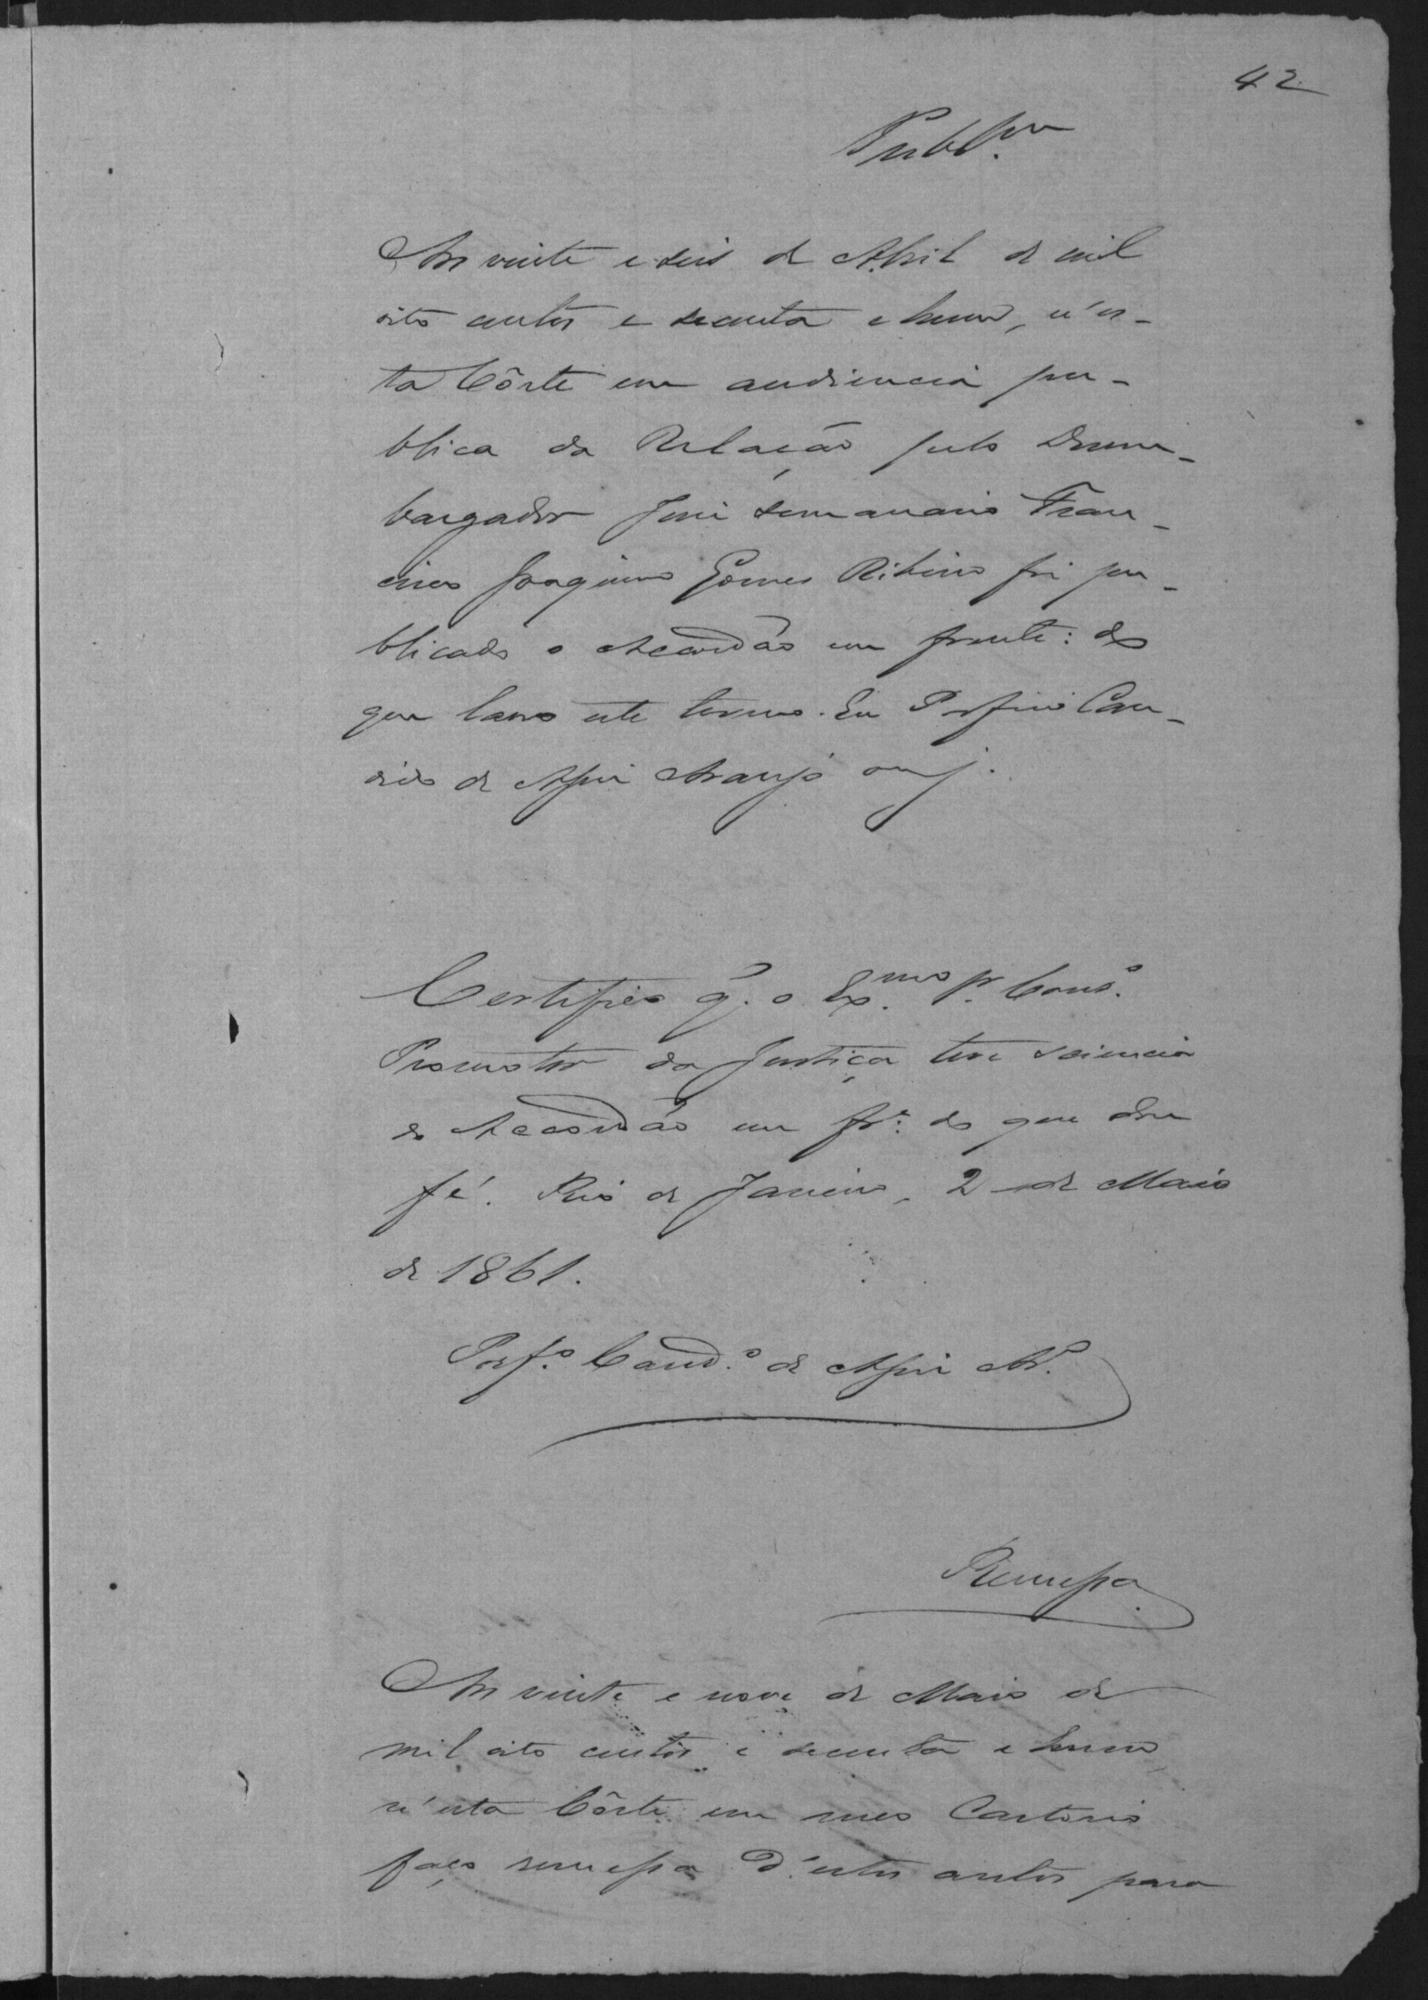 42
Publ.ᵐ
Aos vinte e seis de Abril de mil
oito centos e secenta e hum, n'es-
ta Côrte em audiencia pu-
blica da Relação pelo Desem-
bargador Juiz semanario Fran-
cisco Joaquim Gomes Ribeiro foi pu-
blicado o Accordão em frente: do
que lavro este termo. Eu Porfirio Can-
dido de Assis Araujo
Certifico q̃. o Ex.ᵐᵒ Sr. Cons.º
Promotor da Justiça teve sciencia
do Accordão em fr.ᵉ do que dou
fé. Rio de Janeiro, 2 de Maio
de 1861.
Porf.º Cand.º de Assis Ar.º
Remessa
Aos vinte e nove de Maio de
mil oito centos e secenta e hum
n'esta Côrte em meo Cartorio
faço remessa d'estes autos para